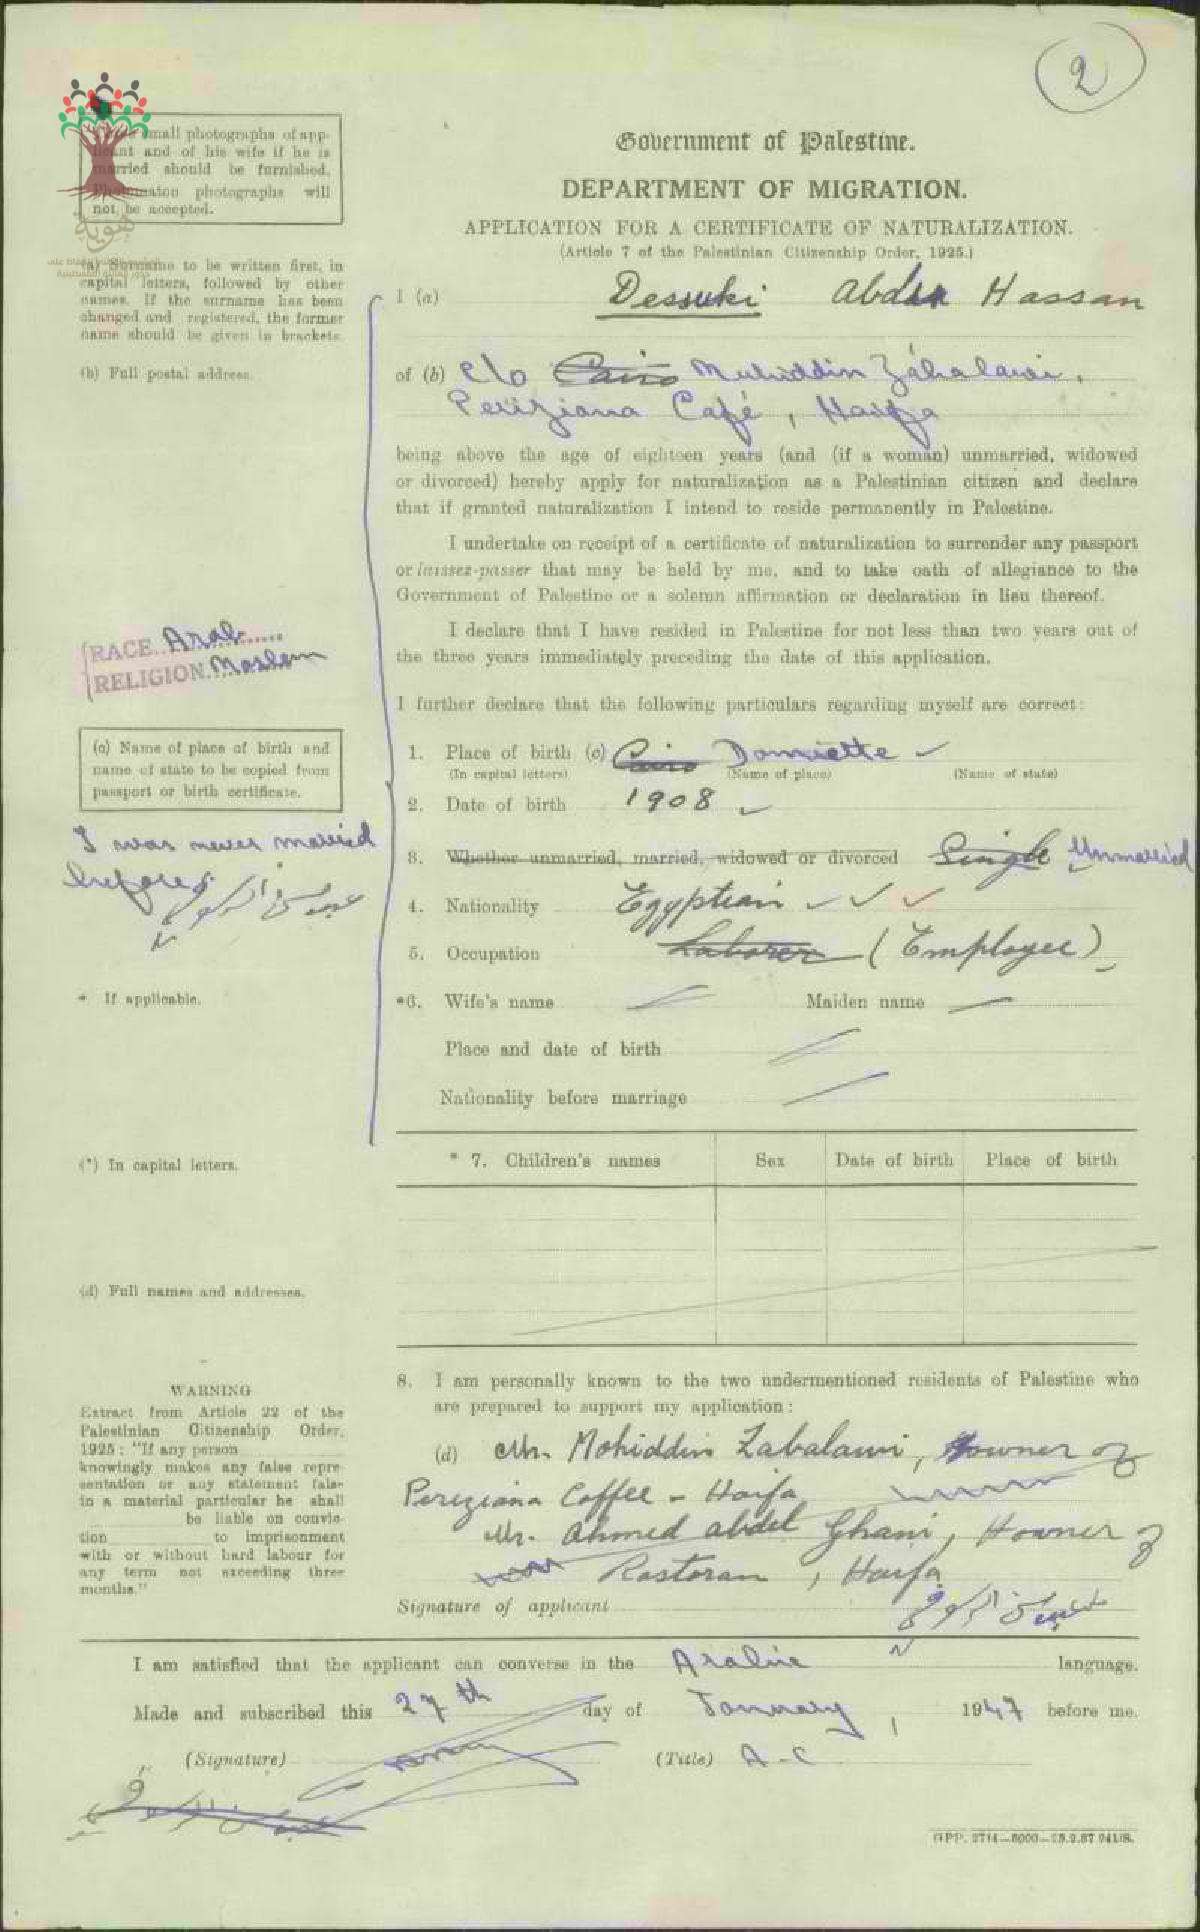 2
Two small photographs of app-
licant and of his wife if he is
married should be furnished.
Photomaton photographs will
not be accepted.
هوية
Government of Palestine.
DEPARTMENT OF MIGRATION.
APPLICATION FOR A CERTIFICATE OF NATURALIZATION.
(Article 7 of the Palestinian Citizenship Order, 1925.)
(a) Surname to be written first, in
capital letters, followed by other
names. If the surname has been
changed and registered, the former
name should be given in brackets.
(b) Full postal address.
I (a) Dessuki Hassan
of (b) c/o Cairo Muhiddin Zabalawi,
Perziana Café, Haifa
being above the age of eighteen years (and (if a woman) unmarried, widowed
or divorced) hereby apply for naturalization as a Palestinian citizen and declare
that if granted naturalization I intend to reside permanently in Palestine.
I undertake on receipt of a certificate of naturalization to surrender any passport
or laissez-passer that may be held by me, and to take oath of allegiance to the
Government of Palestine or a solemn affirmation or declaration in lieu thereof.
I declare that I have resided in Palestine for not less than two years out of
the three years immediately preceding the date of this application.
RACE Arab
RELIGION Moslem
I further declare that the following particulars regarding myself are correct:
(c) Name of place of birth and
name of state to be copied from
passport or birth certificate.
1. Place of birth (c) Cairo Domiette
(In capital letters) (Name of place) (Name of state)
2. Date of birth 1908
I was never married
before.
3. Whether unmarried, married, widowed or divorced Single Unmarried
4. Nationality Egyptian
5. Occupation Laborer (Employee)
* If applicable.
*6. Wife's name Maiden name
Place and date of birth
Nationality before marriage
(*) In capital letters.
* 7. Children's names Sex Date of birth Place of birth
(d) Full names and addresses.
8. I am personally known to the two undermentioned residents of Palestine who
are prepared to support my application:
(d) Mr. Mohiddin Zabalawi, owner of
Pereziana Coffee - Haifa
Mr. Ahmed abdel Ghani, Howner of
Rostoran, Haifa
Signature of applicant
WARNING
Extract from Article 22 of the
Palestinian Citizenship Order,
1925: "If any person
knowingly makes any false repre-
sentation or any statement false
in a material particular he shall
be liable on convic-
tion to imprisonment
with or without hard labour for
any term not exceeding three
months."
I am satisfied that the applicant can converse in the Arabic language.
Made and subscribed this 27th day of January, 1947 before me.
(Signature) (Title) A-C